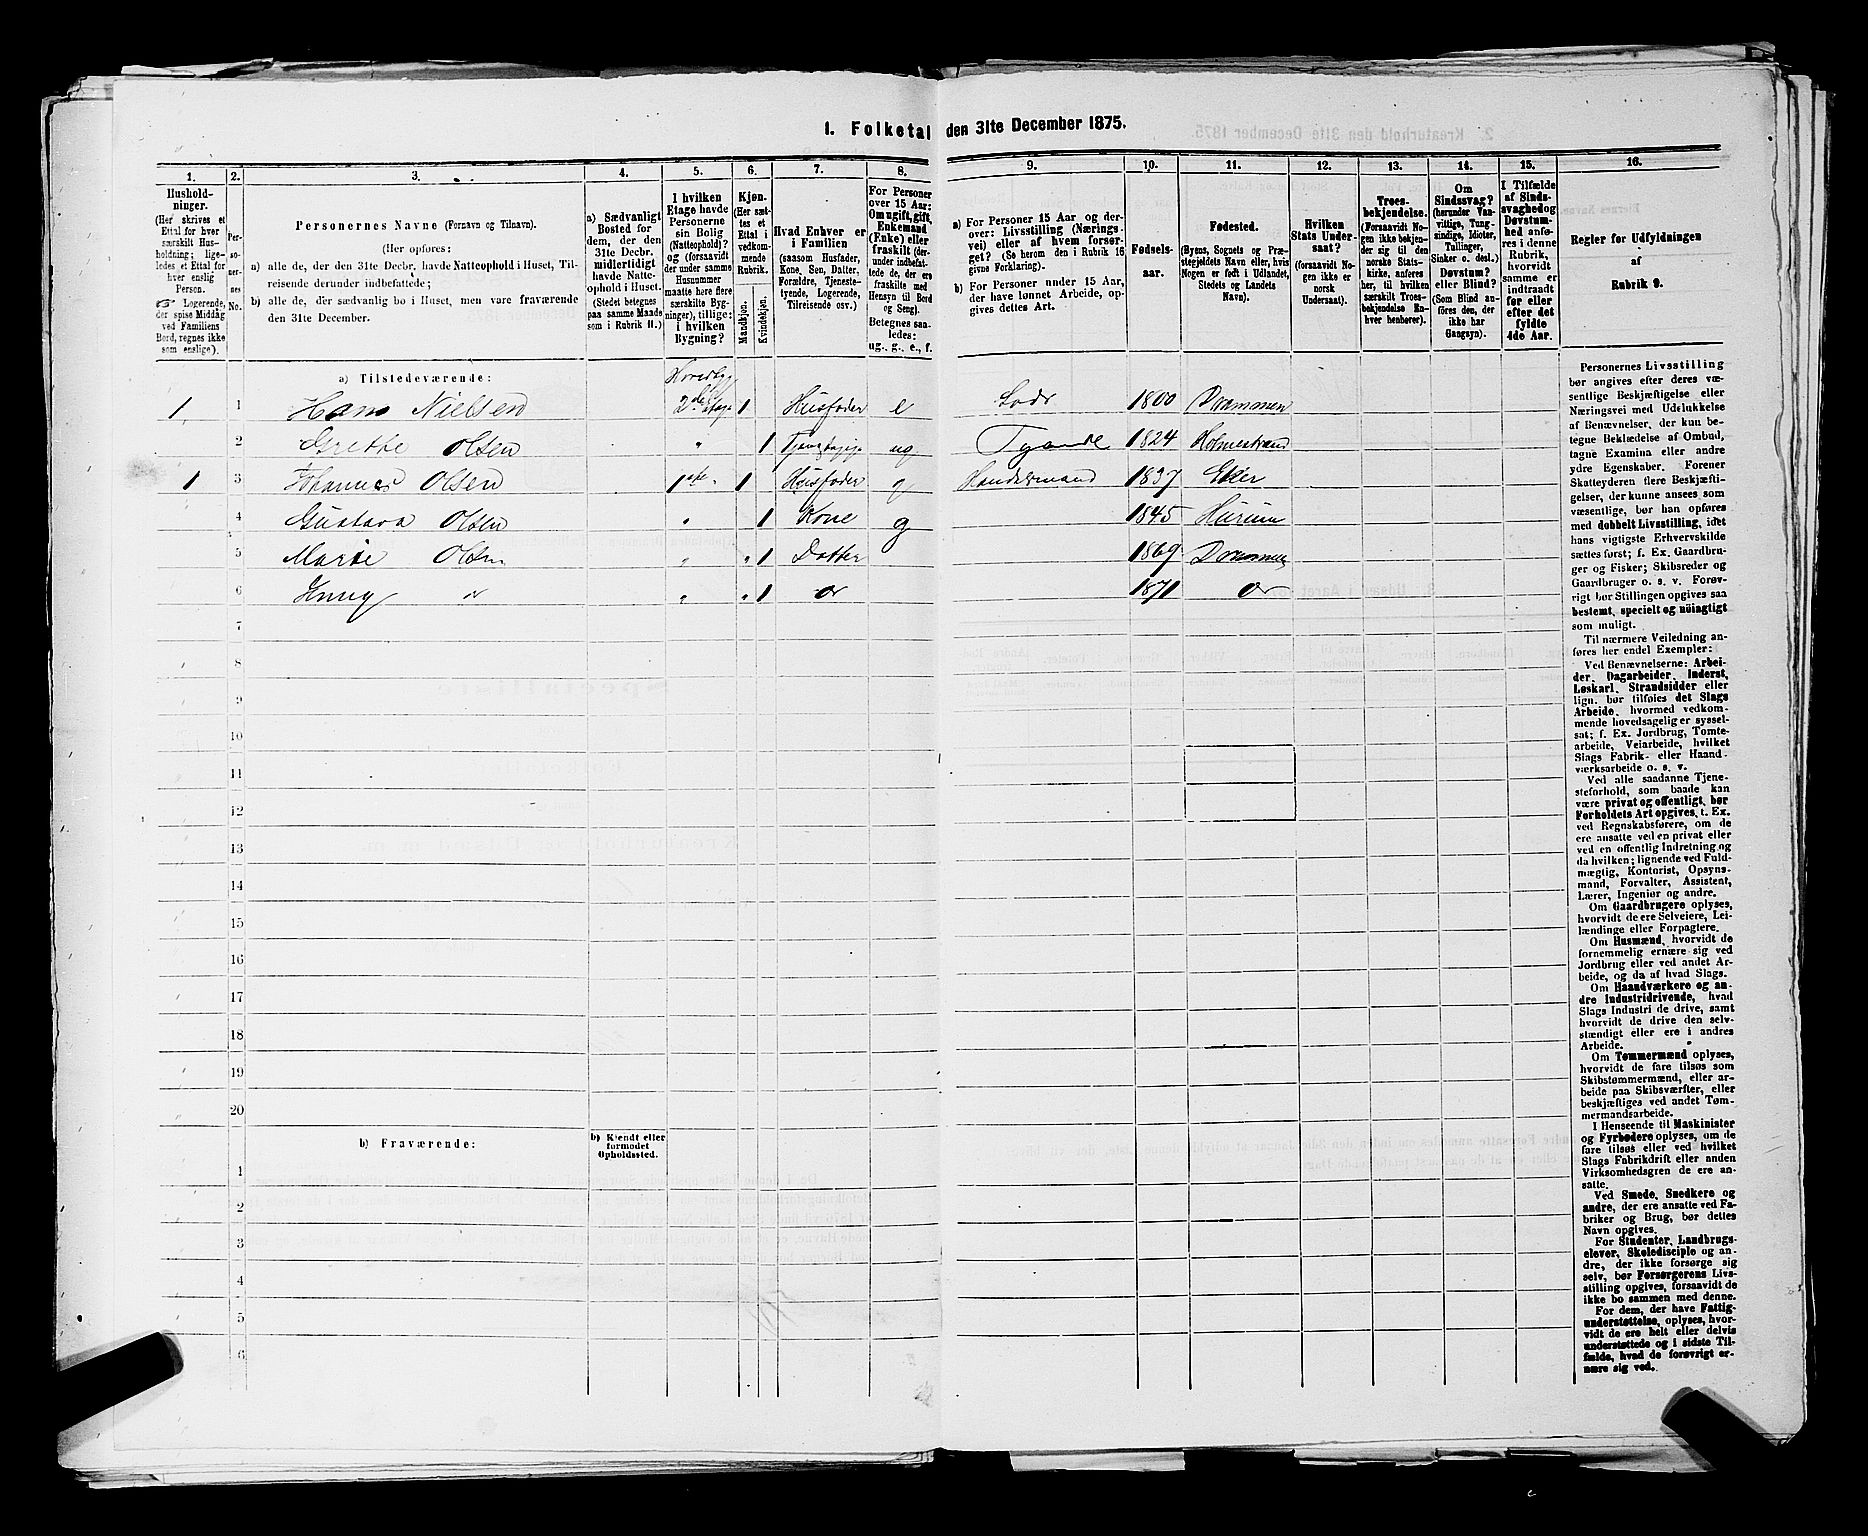 1. Folketal den 31te December 1875.
1. 2. 3. 4. 5. 6. 7. 8. 9. 10. 11. 12. 13. 14. 15. 16.
Hushold-
ninger.
(Her skrives et
Ettal for hver
særskilt Hus-
holdning; lige-
ledes et Ettal for
hver enslig
Person.
☞ Logerende,
der spise Middag
ved Familiens
Bord, regnes ikke
som enslige).
Per-
so-
ner-
nes
No.
Personernes Navne (Fornavn og Tilnavn).
(Her opføres:
a) alle de, der den 31te Decbr. havde Natteophold i Huset, Til-
reisende derunder indbefattede;
b) alle de, der sædvanlig bo i Huset, men vare fraværende
den 31te December.
a) Sædvanligt
Bosted for
dem, der den
31te Decbr.
midlertidigt
havde Natte-
ophold i Huset.
(Stedet betegnes
paa samme Maade
som i Rubrik 11.)
I hvilken
Etage havde
Personerne
sin Bolig
(Natteophold)?
og (forsaavidt
der under samme
Husnummer
maatte høre flere
særskilte Byg-
ninger), tillige:
i hvilken
Bygning?
Kjøn.
(Her sæt-
tes et
Ettal i
vedkom-
mende
Rubrik.
Mandkjøn.
Kvindekjøn.
Hvad Enhver er
i Familien
(saasom Husfader,
Kone, Søn, Datter,
Forældre, Tjeneste-
tyende, Logerende,
Tilreisende osv.)
For Personer
over 15 Aar:
Om ugift, gift,
Enkemand
(Enke) eller
fraskilt (der-
under indbefat-
tede de, der ere
fraskilte med
Hensyn til Bord
og Seng).
Betegnes saa-
ledes:
ug., g., e., f.
a) For Personer 15 Aar og der-
over: Livsstilling (Nærings-
vei) eller af hvem forsør-
get? (Se herom den i Rubrik 16
givne Forklaring).
b) For Personer under 15 Aar,
der have lønnet Arbeide, op-
gives dettes Art.
Fødsels-
aar.
Fødested.
(Byens, Sognets og Præ-
stegjeldets Navn eller, hvis
Nogen er født i Udlandet,
Stedets og Landets
Navn).
Hvilken
Stats Under-
saat?
(forsaavidt No-
gen ikke er
norsk
Undersaat).
Troes-
bekjendelse.
(Forsaavidt No-
gen ikke bekjen-
der sig til den
norske Stats-
kirke, anføres
her, til hvilken
særskilt Troes-
bekjendelse En-
hver henhører).
Om
Sindssvag?
(herunder Van-
vittige, Tung-
sindige, Idioter,
Tullinger,
Sinker o. desl.)
Døvstum?
eller Blind?
(Som Blind an-
føres den, der
ikke har
Gangsyn).
I Tilfælde
af Sinds-
svaghed og
Døvstum-
hed anfø-
res i denne
Rubrik,
hvorvidt
samme er
indtraadt
før eller
efter det
fyldte
4de Aar.
Regler for Udfyldningen
af
Rubrik 9.
a) Tilstedeværende:
1 1 Hans Nielsen 2den Etage 1 Husfader e 1800 Drammen
2 Grethe Olsen " 1 ug Tyende 1824 Holmestrand
1 3 Johannes Olsen 1ste " 1 Husfader g Handelsmand 1837 Eker
4 Gustava Olsen " 1 Kone g 1845 Hurum
5 Marie Olsen " " 1 Datter 1869 Drammen
6 " " " 1 do 1871 do
7
8
9
10
11
12
13
14
15
16
17
18
19
20
b) Fraværende:
b) Kjendt eller
formodet
Opholdssted.
1
2
3
4
5
6
Personernes Livsstilling
bør angives efter deres væ-
sentlige Beskjæftigelse eller
Næringsvei med Udelukkelse
af Benævnelser, der kun be-
tegne Beklædelse af Ombud,
tagne Examina eller andre
ydre Egenskaber. Forener
Skatteyderen flere Beskjæfti-
gelser, der kunne ansees som
væsentlige, bør han opføres
med dobbelt Livsstilling, idet
hans vigtigste Erhvervskilde
sættes først; f. Ex. Gaardbru-
ger og Fisker; Skibsreder og
Gaardbruger o. s. v. Forøv-
rigt bør Stillingen opgives saa
bestemt, specielt og nøiagtigt
som muligt.
Til nærmere Veiledning an-
føres her endel Exempler:
Ved Benævnelserne: Arbei-
der, Dagarbeider, Inderst,
Løskarl, Strandsidder eller
lign. bør tilføies det Slags
Arbeide, hvormed vedkom-
mende hovedsagelig er syssel-
sat; f. Ex. Jordbrug, Tomte-
arbeide, Veiarbeide, hvilket
Slags Fabrik- eller Haand-
værksarbeide o. s. v.
Ved alle saadanne Tjene-
steforhold, som baade kan
være privat og offentligt, bør
Forholdets Art opgives, t. Ex.
ved Regnskabsførere, om de
ere ansatte ved en privat eller
ved en offentlig Indretning og
da hvilken; lignende ved Fuld-
mægtig, Kontorist, Opsyns-
mand, Forvalter, Assistent,
Lærer, Ingeniør og andre.
Om Gaardbrugere oplyses,
hvorvidt de ere Selveiere, Lei-
lændinge eller Forpagtere.
Om Husmænd, hvorvidt de
fornemmelig ernære sig ved
Jordbrug eller ved andet Ar-
beide, og da af hvad Slags.
Om Haandværkere og an-
dre Industridrivende, hvad
Slags Industri de drive, samt
hvorvidt de drive den selv-
stændigt eller ere i andres
Arbeide.
Om Tømmermænd oplyses,
hvorvidt de fare tilsøs som
Skibstømmermænd, eller ar-
beide paa Skibsværfter, eller
beskjæftiges ved andet Tøm-
mermandsarbeide.
I Henseende til Maskinister
og Fyrbødere oplyses, om de
fare tilsøs eller ved hvilket
Slags Fabrikdrift eller anden
Virksomhedsgren de ere an-
satte.
Ved Smede, Snedkere og
andre, der ere ansatte ved Fa-
briker og Brug, bør dettes
Navn opgives.
For Studenter, Landbrugs-
elever, Skoledisciple og an-
dre, der ikke forsørge sig
selv, bør Forsørgerens Livs-
stilling opgives, forsaavidt de
ikke bo sammen med denne.
For dem, der have Fattig-
understøttelse, oplyses, hvor-
vidt de ere helt eller delvis
understøttede og i sidste Til-
fælde, hvad de forøvrigt er-
nære sig ved.